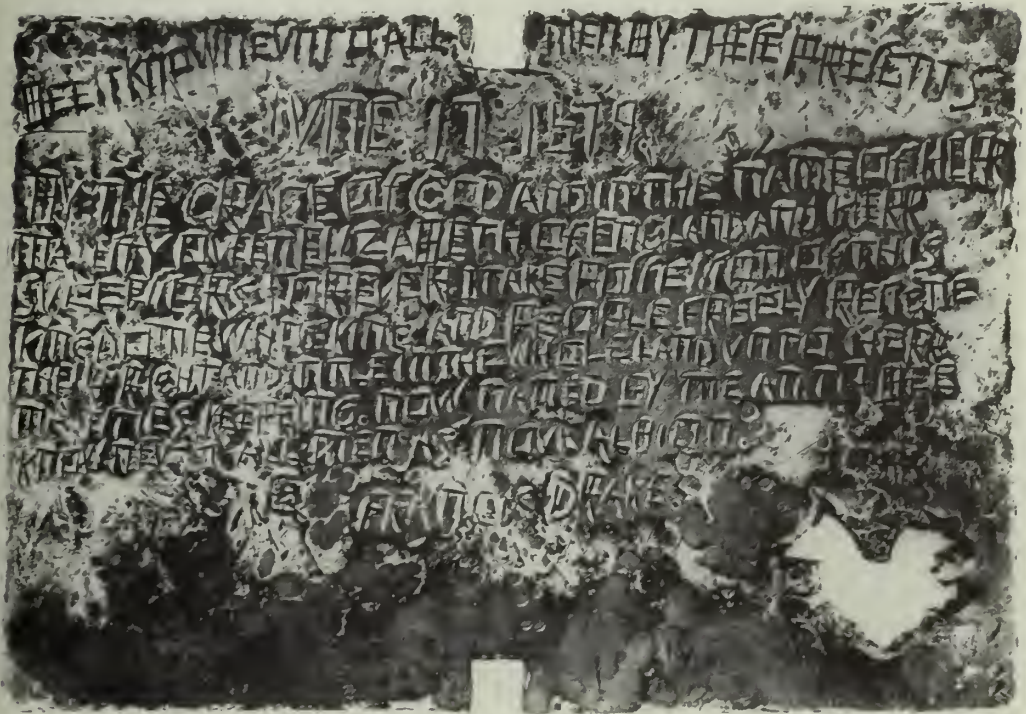 BEE IT KNOWNE VNTO ALL MEN BY THESE PRESENTS
IVNE 17 1579
BY THE GRACE OF GOD AND IN THE NAME OF HERR
MAIESTY QVEEN ELIZABETH OF ENGLAND AND HERR
SVCCESSORS FOREVER I TAKE POSSESSION OF THIS
KINGDOME WHOSE KING AND PEOPLE FREELY RESIGNE
THEIR RIGHT AND TITLE IN THE WHOLE LAND VNTO HERR
MAIESTIES KEEPING NOW NAMED BY ME AN TO BEE
KNOWNE VNTO ALL MEN AS NOVA ALBION
FRANCIS DRAKE